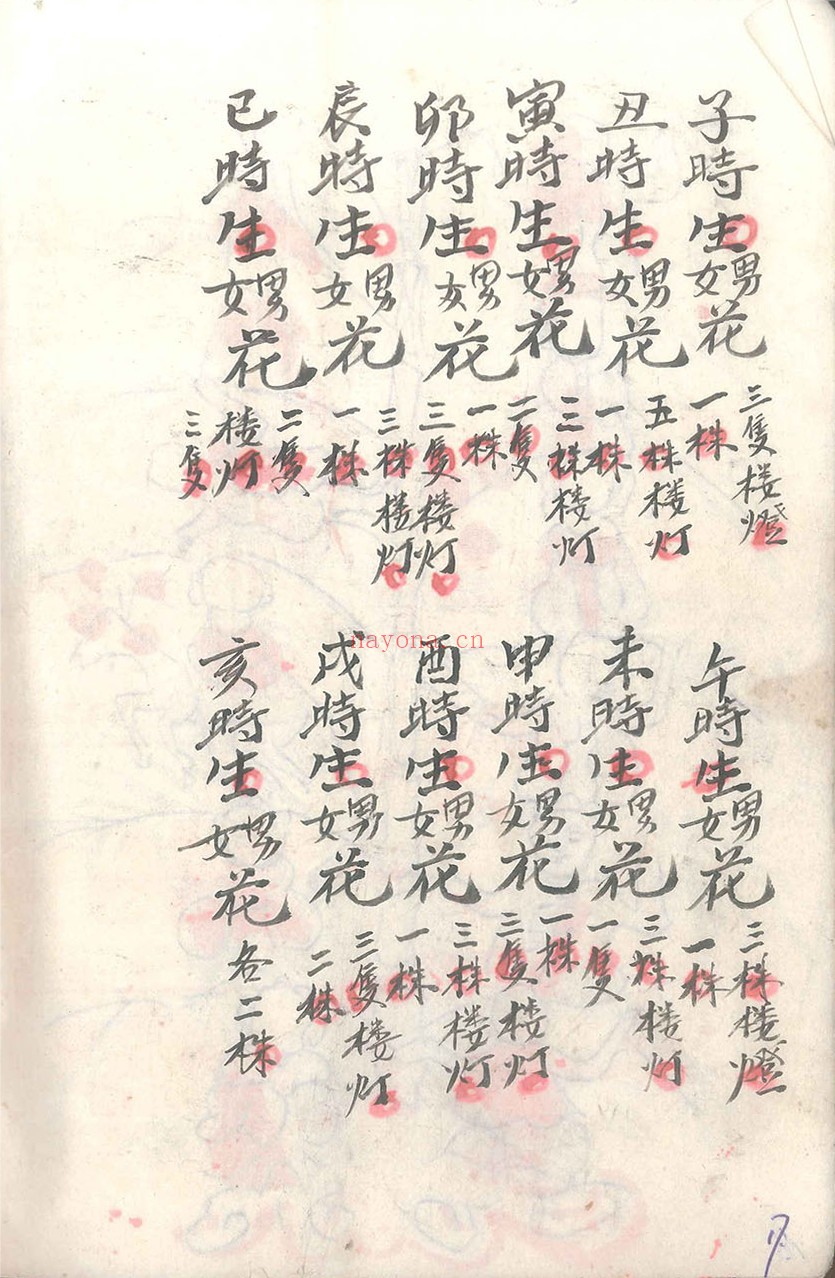 子時生男女花
三隻楼燈
一株
丑時生男女花
五株楼灯
一株
寅時生男女花
三株楼灯
二隻
卯時生男女花
一株
三隻楼灯
辰時生男女花
三株楼灯
一株
巳時生男女花
二隻
楼灯
三隻
午時生男女花
三株楼燈
一株
未時生男女花
三株楼灯
一隻
申時生男女花
一株
三隻楼灯
酉時生男女花
三株楼灯
一株
戌時生男女花
三隻楼灯
二株
亥時生男女花
各二株
nayona.cn